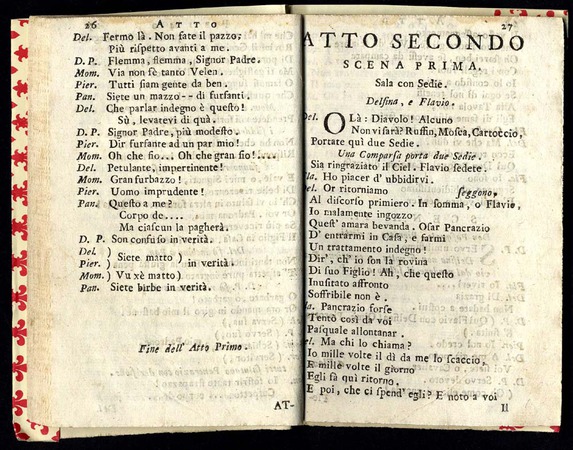 26 ATTO
Del. Fermo là. Non fate il pazzo;
Più rispetto avanti a me.
D. P. Flemma, flemma, Signor Padre.
Mom. Via non sè tanto Velen.
Pier. Tutti siam gente da ben.
Pan. Siete un mazzo-- di furfanti.
Del. Che parlar indegno è questo!
Sù, levatevi di quà.
D. P. Signor Padre, più modesto.
Pier. Dir furfante ad un par mio!
Mom. Oh che fio... Oh che gran fio!....
Del. Petulante, impertinente!
Mom. Gran furbazzo!
Pier. Uomo imprudente!
Pan. Questo a me?
Corpo de....
Ma ciascun la pagherà.
D. P. Son confuso in verità.
Del. )
Pier. ) Siete matto ) in verità.
Mom. ) Vu xè matto )
Pan. Siete birbe in verità.
Fine dell' Atto Primo.
AT-
27
ATTO SECONDO
SCENA PRIMA.
Sala con Sedie.
Delfina, e Flavio.
Del. OLà: Diavolo! Alcuno
Non vi sarà? Ruffin, Mosca, Cartoccio,
Portate quì due Sedie.
Una Comparsa porta due Sedie.
Sia ringraziato il Ciel. Flavio sedete.
Fla. Ho piacer d' ubbidirvi.
Del. Or ritorniamo seggono,
Al discorso primiero. In somma, o Flavio,
Io malamente ingozzo
Quest' amara bevanda. Osar Pancrazio
D' entrarmi in Casa, e farmi
Un trattamento indegno!
Dir', ch' io son la rovina
Di suo Figlio! Ah, che questo
Inusitato affronto
Soffribile non è.
Fla. Pancrazio forse
Tentò così da voi
Pasquale allontanar.
Del. Ma chi lo chiama?
Io mille volte il dì da me lo scaccio,
E mille volte il giorno
Egli fà quì ritorno.
E poi, che ci spend' egli? E noto a voi
Il